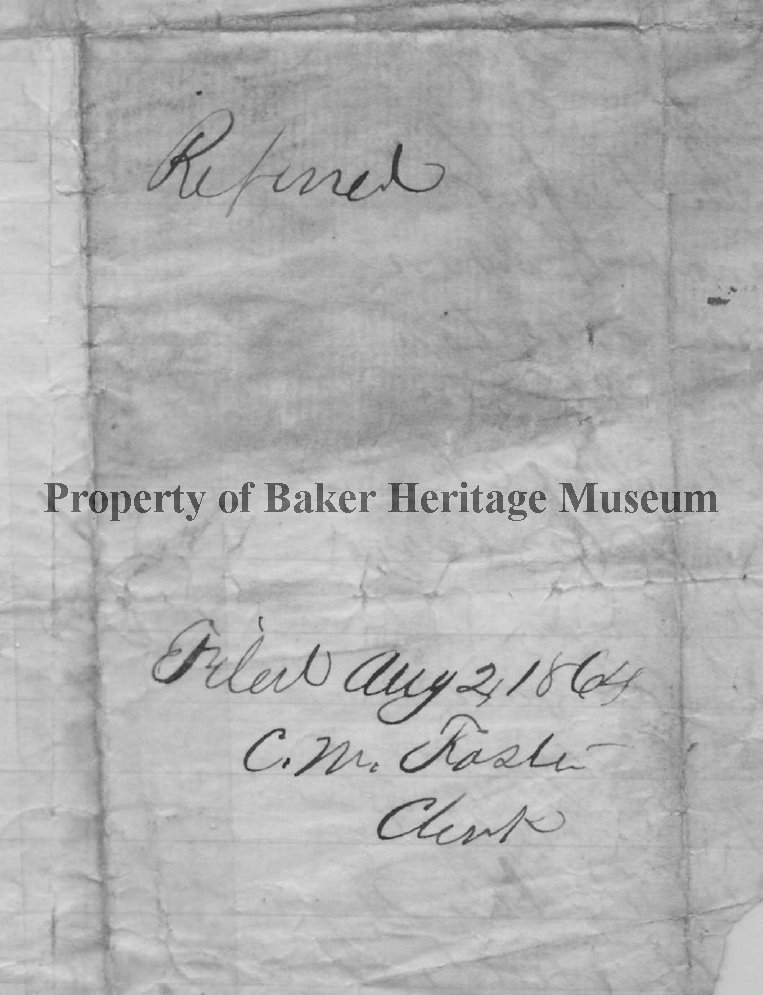 Referred
Property of Baker Heritage Museum
Filed Aug 2, 1864
C. M. Foster
Clerk